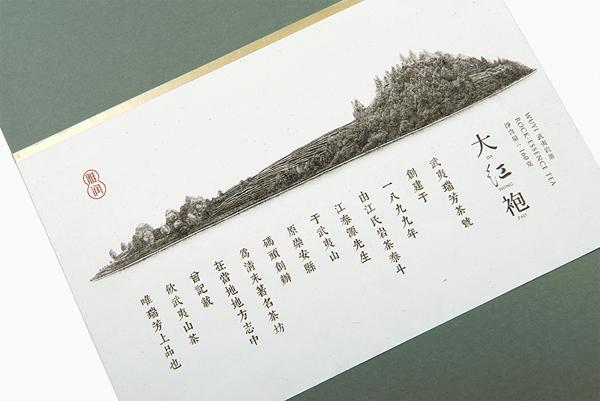 武夷岩茶
WUYI
ROCK-ESSENCE TEA
淨含量：160克
大红袍
DA HONG PAO
武夷瑞芳茶號
創建于
一八九九年
由江氏岩茶泰斗
江泰源先生
于武夷山
原崇安縣
碼頭創辦
爲清末著名茶坊
在當地地方志中
曾記載
飲武夷山茶
唯瑞芳上品也